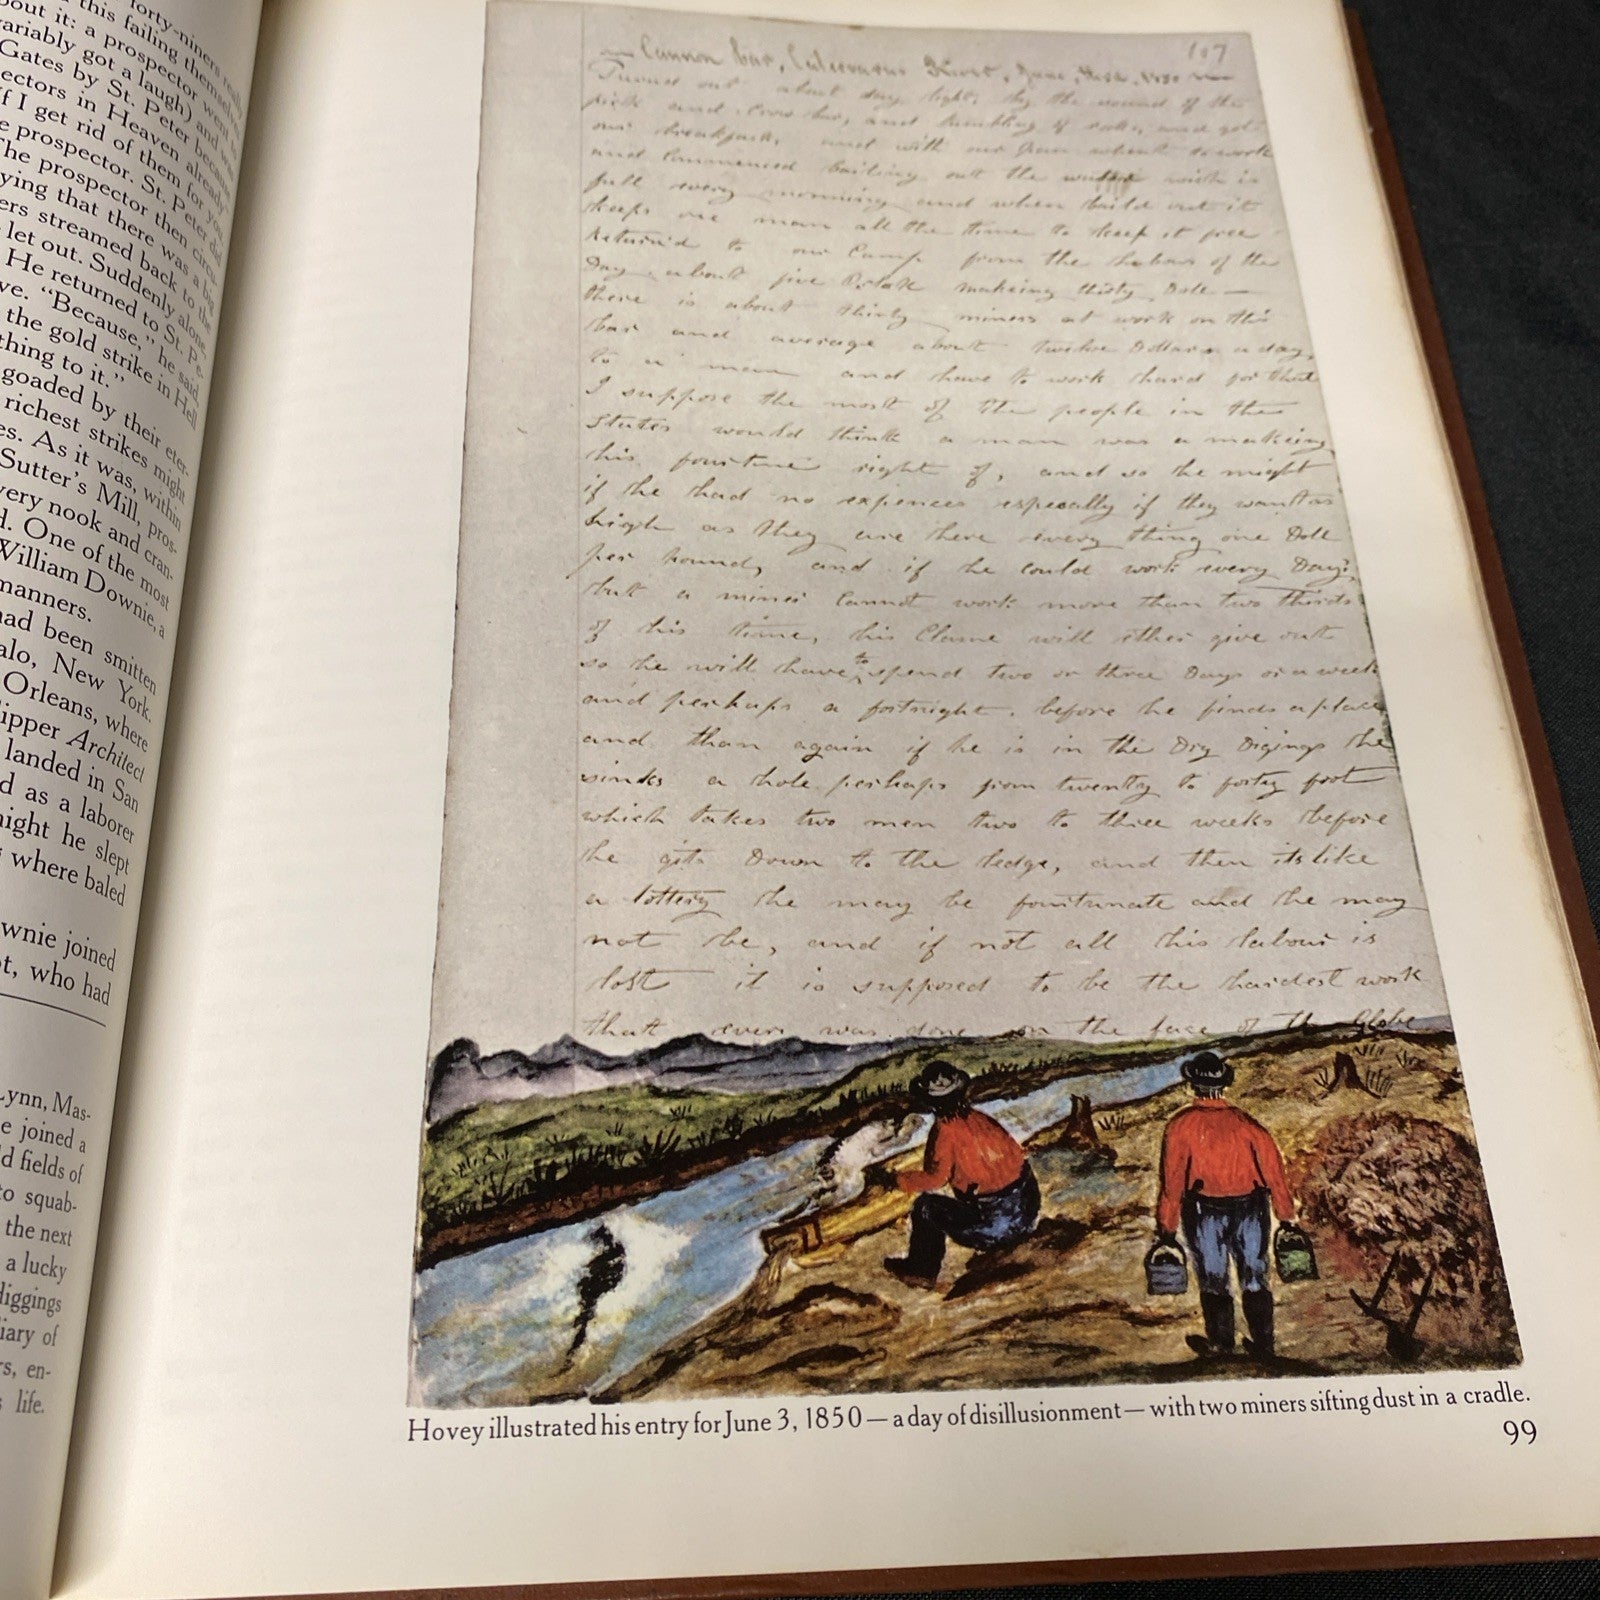 forty-niners really
this failing themselves
out it: a prospector went
variably got a laugh) and was
Gates by St. Peter because
ectors in Heaven already.
f I get rid of them for you,
e prospector. St. Peter did
The prospector then circu-
ying that there was a big
ers streamed back to the
let out. Suddenly alone,
He returned to St. Pe-
ve. "Because," he said,
the gold strike in Hell
thing to it."
goaded by their eter-
richest strikes might
es. As it was, within
Sutter's Mill, pros-
very nook and cran-
d. One of the most
William Downie, a
manners.
had been smitten
alo, New York.
Orleans, where
lipper Architect
landed in San
d as a laborer
night he slept
where baled
wnie joined
t, who had
Lynn, Mas-
e joined a
d fields of
to squab-
the next
a lucky
diggings
iary of
rs, en-
life.
107
Cannon bar, Calervarus River, June, 1850
Turned out about day light, by the sound of the
pick and crow bar, and tumbling of rocks, and got
our breakfast, and with our pan whent to work
and commenced bailing out the water wich is
full every morning and when baild out it
keeps one man all the time to keep it free
Returnd to our Camp from the labour of the
Day about five Oclock makeing thirty Dolls —
there is about thirty miners at work on this
bar and average about twelve Dollars a day,
to a man and have to work hard for that
I suppose the most of the people in the
States would think a man was a makeing
his fourtune right of, and so he might
if he had no expences espeally if they want as
high as they are here every thing one Doll
per pound, and if he could work every Day,
but a miner Cannot work more than two thirds
of his time, his Clame will ether give out
so he will have to spend two or three Days or a week
and perhaps a fortnight, before he finds a place
and than again if he is in the Dry Digings he
sinks a hole perhaps from twenty to forty foot
which takes two men two to three weeks before
he gits Down to the ledge, and then its like
a lottery he may be fourtunate and he may
not be, and if not all his labour is
lost it is supposed to be the hardest work
that ever was done on the face of the Globe
Hovey illustrated his entry for June 3, 1850 — a day of disillusionment — with two miners sifting dust in a cradle.
99